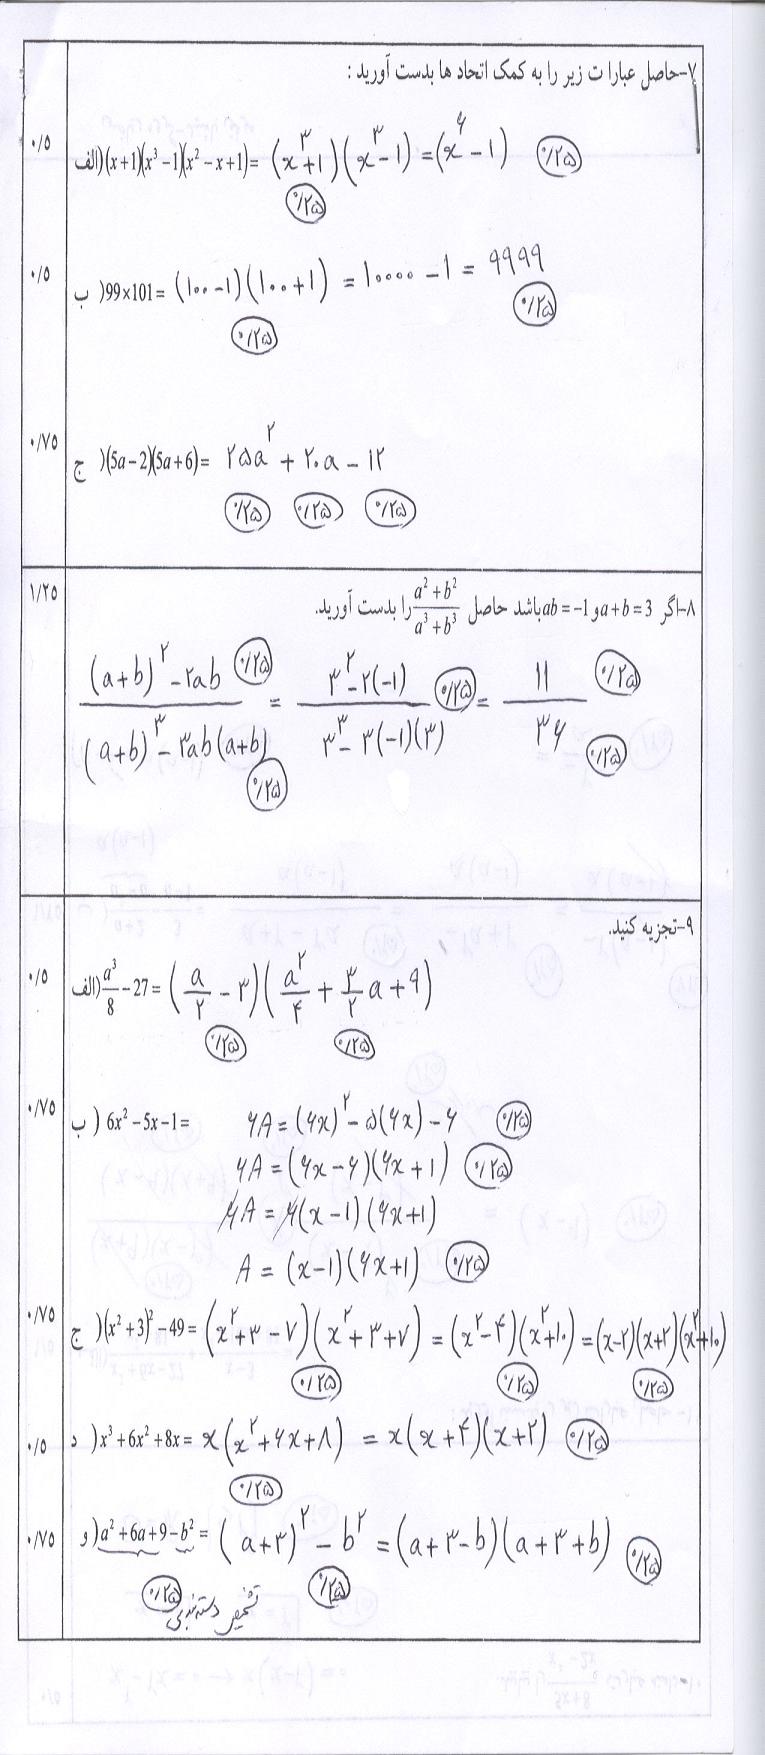 ۷-حاصل عبارات زیر را به کمک اتحاد ها بدست آورید :
۰/۵
الف) (x+1)(x³−1)(x²−x+1)= (x³+۱)(x³−۱) = (x⁶−۱) ۰/۲۵
۰/۲۵
۰/۵
ب) 99×101= (۱۰۰−۱)(۱۰۰+۱) = ۱۰۰۰۰ −۱ = ۹۹۹۹
۰/۲۵ ۰/۲۵
۰/۷۵
ج) (5a−2)(5a+6)= ۲۵a² + ۲۰a − ۱۲
۰/۲۵ ۰/۲۵ ۰/۲۵
۱/۲۵
۸-اگر a+b=3 و ab=−1 باشد حاصل (a²+b²)/(a³+b³) را بدست آورید.
((a+b)² −۲ab)/((a+b)³ −۳ab(a+b)) = (۳²−۲(−۱))/(۳³−۳(−۱)(۳)) = ۱۱/۳۶
۰/۲۵ ۰/۲۵ ۰/۲۵ ۰/۲۵ ۰/۲۵
۹-تجزیه کنید.
۰/۵
الف) a³/8 −27= (a/۲ −۳)(a²/۴ + ۳/۲ a +۹)
۰/۲۵ ۰/۲۵
۰/۷۵
ب) 6x²−5x−1= ۶A = (۶x)² −۵(۶x) −۶ ۰/۲۵
۶A = (۶x−۶)(۶x+۱) ۰/۲۵
۶A = ۶(x−۱)(۶x+۱)
A = (x−۱)(۶x+۱) ۰/۲۵
۰/۷۵
ج) (x²+3)²−49= (x²+۳−۷)(x²+۳+۷) = (x²−۴)(x²+۱۰) = (x−۲)(x+۲)(x²+۱۰)
۰/۲۵ ۰/۲۵ ۰/۲۵
۰/۵
د) x³+6x²+8x= x(x²+۶x+۸) = x(x+۴)(x+۲) ۰/۲۵
۰/۲۵
۰/۷۵
و) a²+6a+9−b²= (a+۳)² − b² = (a+۳−b)(a+۳+b) ۰/۲۵
۰/۲۵ تشخیص دسته بندی ۰/۲۵